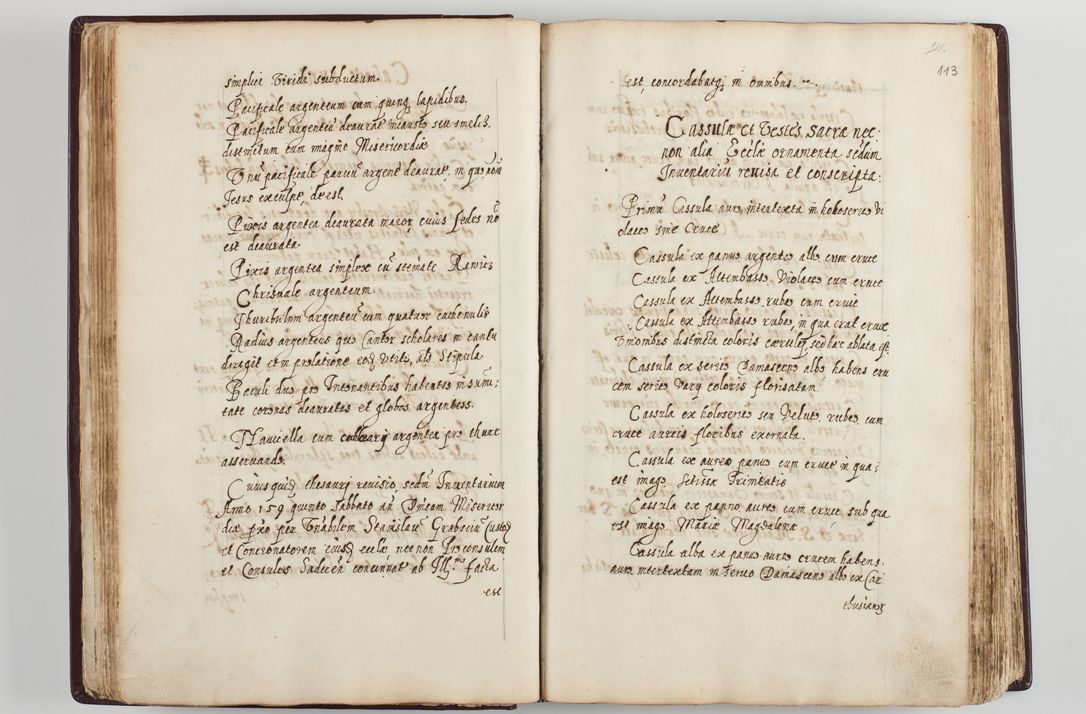 simplici viridi subductum.
Pacificale argenteum cum quinq lapidibus.
Pacificale argenteũ deaurat incausto seu smelcz.
distinctum cum imagine Misericordiæ
Unũ pacificale parvũ argent deaurat, in quo
Jesus exculpt, deest.
Pixis argentea deaurata maior, cuius sedes nõ
est deaurata.
Pixis argentea simplex cũ stemate Rawicz
Chrismale argenteum.
Thuribulum argenteũ cum quatuor cathenulis
Radius argenteus quo Cantor scholares in cantu
diregit et in prolatione utit, als Stipula
Baculi duo pro Intonantibus habentes in sum:
tate coronas deauratas et globos argenteos.
Navicella cum argentea pro thure
asservando.
Cuiusquidẽ thesaury revisio, sedm Inventarium
Anno 159 quinto Sabbato añ Dñcam Misericor
diæ pro per Vnãbilem Stanislaũ Grabsciũ Custo
et Concionatorem eiusd ecclæ, nec non Proconsulem
et Consules Sadecen ab Ill.mo facta
est
113
est concordabatq in omnibus.
Cassulæ et Vestes sacræ nec
non alia Ecclæ ornamenta sedm
Inventariũ revisa et conscripta:
Primũ Cassula auro intertexta in holoserico vi
olaceo sine Cruce
Cassula ex panno argenteo albo cum cruce
Cassula ex Altembasso Violaceo cum cruce
Cassula ex Altembasso, rubeo cum cruce
Cassula ex Altembasso rubeo, in qua erat crux
Unionibus distincta coloris cærulei, sed hæc ablata est.
Cassula ex serico Damasceno albo habens cru
cem serico Vary coloris florisatam.
Cassula ex holoserico seu Veluto, rubeo, cum
cruce aureis floribus exornata.
Cassula ex aureo panno cum cruce in qua:
est imago Sctissæ Trinitatis
Cassula ex panno aureo cum cruce sub qua
est imago Mariæ Magdalenæ
Cassula alba ex panno aureo crucem habens.
auro intertextam in serico Damasceno albo ex Car
thusianor